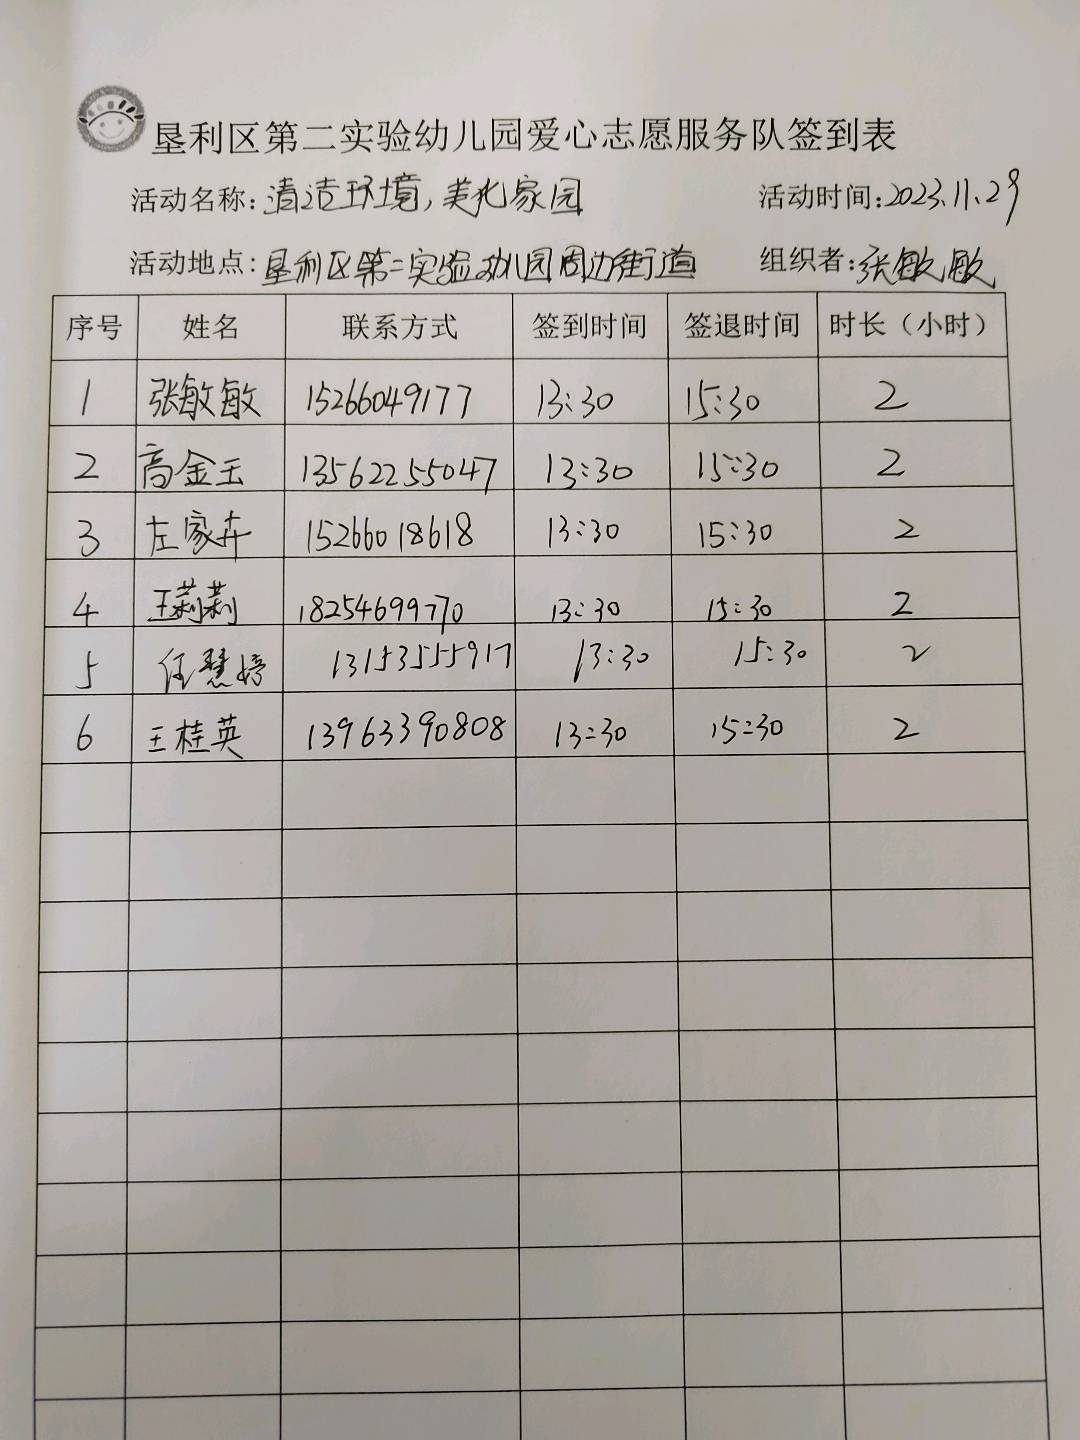 垦利区第二实验幼儿园爱心志愿服务队签到表
活动名称:清洁环境,美化家园 活动时间:2023.11.29
活动地点:垦利区第二实验幼儿园周边街道 组织者:张敏敏
序号 姓名 联系方式 签到时间 签退时间 时长（小时）
1 张敏敏 15266049177 13:30 15:30 2
2 高金玉 13562255047 13:30 15:30 2
3 左家卉 15266018618 13:30 15:30 2
4 王莉莉 18254699770 13:30 15:30 2
5 任慧婷 13153555917 13:30 15:30 2
6 王桂英 13963390808 13:30 15:30 2